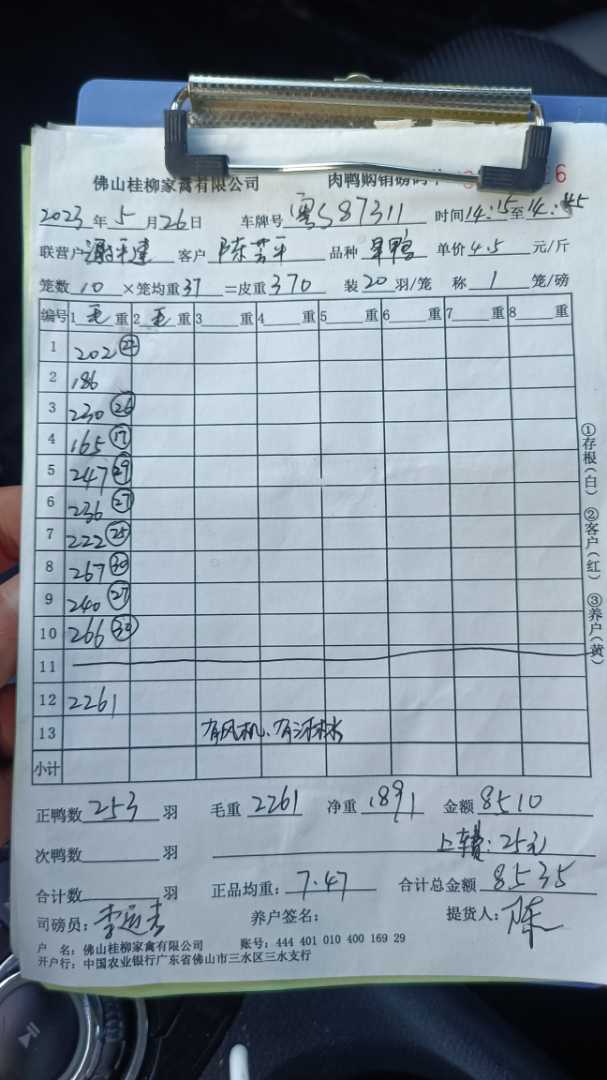 佛山桂柳家禽有限公司 肉鸭购销磅码单 6
2023年5月26日 车牌号 粤S87311 时间14:15至14:45
联营户 谢平建 客户 陈芸平 品种 旱鸭 单价4.5元/斤
笼数10×笼均重37=皮重370 装20羽/笼 称1笼/磅
编号 1毛重 2毛重 3重 4重 5重 6重 7重 8重
1 202
2 186
3 230 (26)
4 165 (17)
5 247 (29)
6 236 (27)
7 222 (25)
8 267 (30)
9 240 (27)
10 266 (30)
11
12 2261
13 有风机、有淋水
小计
正鸭数253羽 毛重2261 净重1891 金额8510
次鸭数羽 上车费:25元
合计数羽 正品均重:7.47 合计总金额8535
司磅员: 养户签名: 提货人:陈
户 名:佛山桂柳家禽有限公司 账号:444 401 010 400 169 29
开户行:中国农业银行广东省佛山市三水区三水支行
①存根(白) ②客户(红) ③养户(黄)